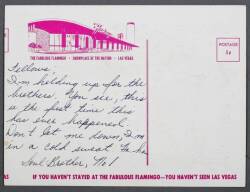 THE FABULOUS FLAMINGO - SHOWPLACE OF THE NATION - LAS VEGAS
POSTAGE
Fellows
I'm holding up for the
brothers. You see, this
is the first time this
has ever happened.
Don't let me down, I'm
in a cold sweat.
Soul Brother, No 1
IF YOU HAVEN'T STAYED AT THE FABULOUS FLAMINGO—YOU HAVEN'T SEEN LAS VEGAS